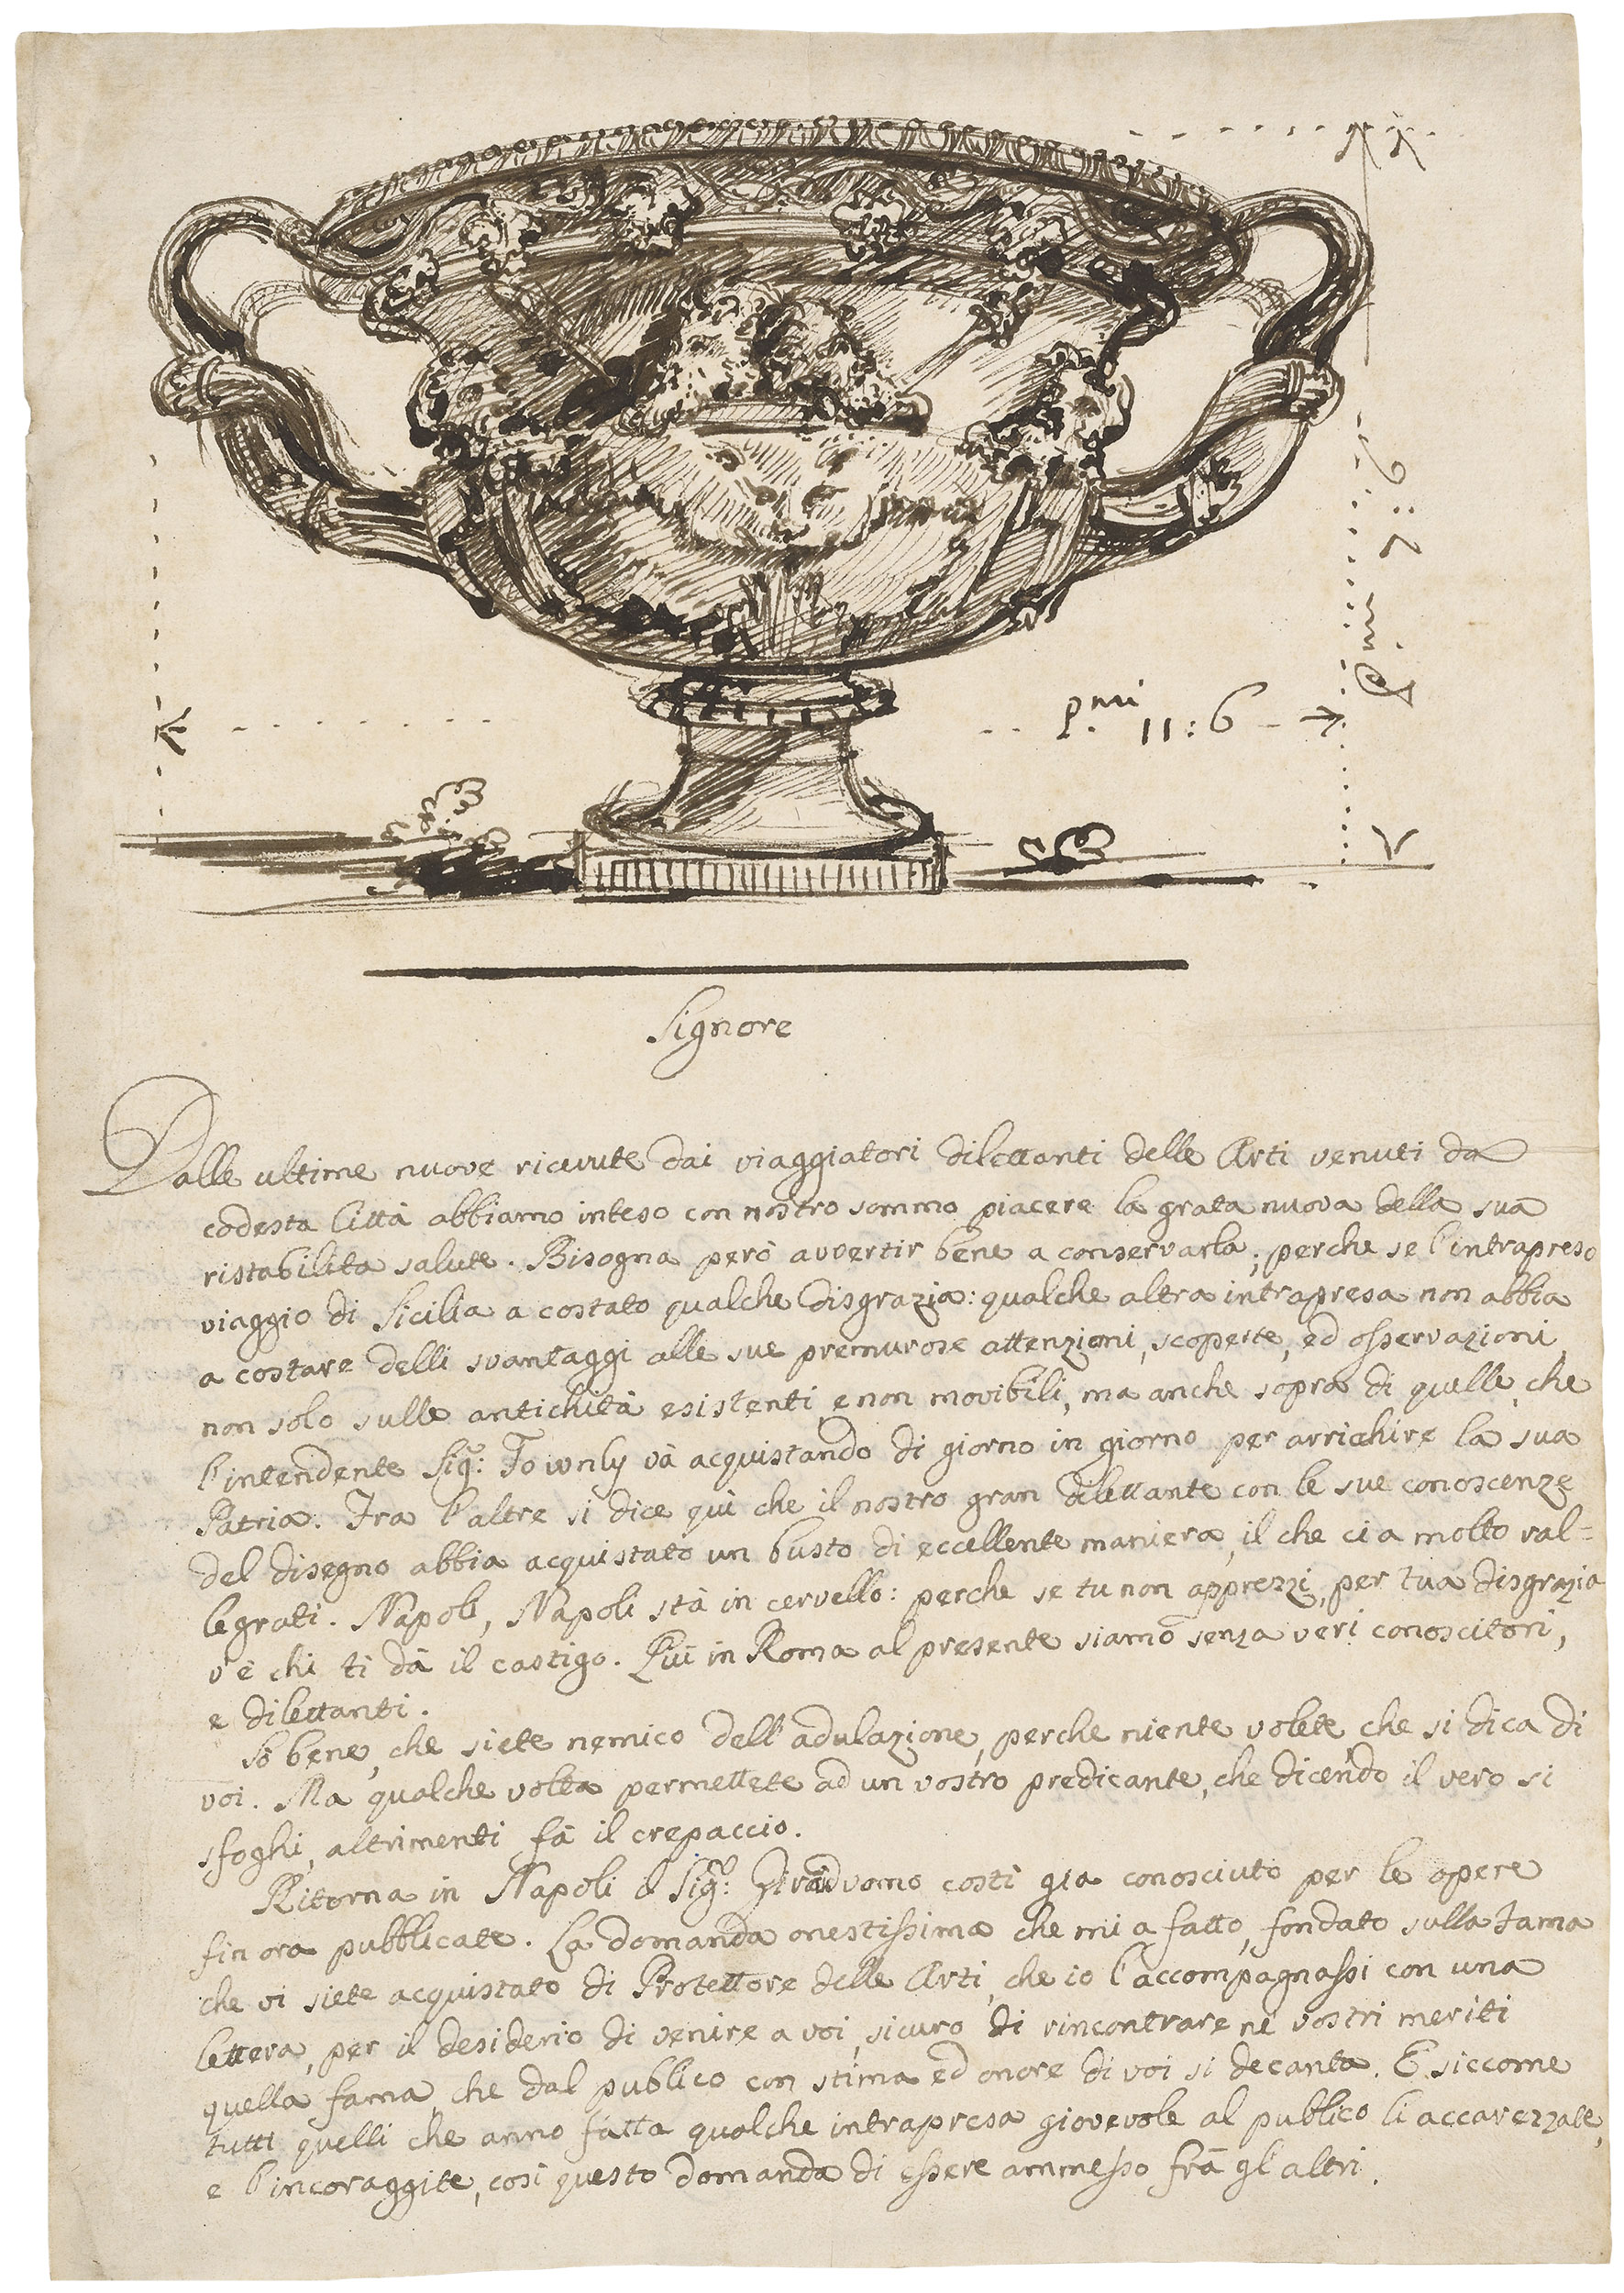 p.mi 7:6
p.mi 11:6
Signore
Dalle ultime nuove ricevute dai viaggiatori dilettanti delle Arti venuti da
codesta Città abbiamo inteso con nostro sommo piacere la grata nuova della sua
ristabilita salute. Bisogna però avvertir bene a conservarla; perche se l'intrapreso
viaggio di Sicilia a costato qualche disgrazia: qualche altra intrapresa non abbia
a costare delli svantaggi alle sue premurose attenzioni, scoperte, ed osservazioni
non solo sulle antichità esistenti, e non movibili, ma anche sopra di quelle, che
l'intendente Sig.r Townly và acquistando di giorno in giorno per arrichire la sua
Patria. Fra l'altre si dice quì che il nostro gran dilettante con le sue conoscenze
del disegno abbia acquistato un busto di eccellente maniera, il che ci a molto ral=
legrati. Napoli, Napoli stà in cervello: perche se tu non apprezzi, per tua disgrazia
v'è chi ti dà il castigo. Quì in Roma al presente siamo senza veri conoscitori,
e dilettanti.
Sò bene, che siete nemico dell'adulazione, perche niente volete, che si dica di
voi. Ma qualche volta permettete ad un vostro predicante, che dicendo il vero si
sfoghi, altrimenti fà il crepaccio.
Ritorna in Napoli il Sig.r costì già conosciuto per le opere
fin ora pubblicate. La domanda onestissima che mi a fatto, fondato sulla fama
che vi siete acquistato di Protettore delle Arti, che io l'accompagnassi con una
lettera, per il desiderio di venire a voi, sicuro di rincontrare nè vostri meriti
quella fama, che dal publico con stima ed onore di voi si decanta. E siccome
tutti quelli che anno fatta qualche intrapresa giovevole al publico li accarezzate,
e l'incoraggite, così questo domanda di essere ammesso frà gl'altri.